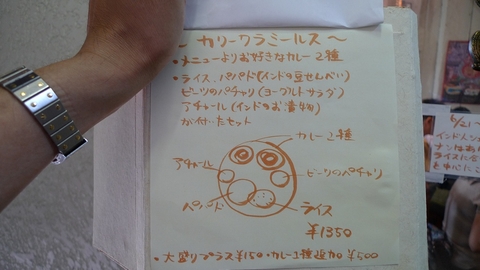 ~ カリーワラミールス ~
・メニューよりお好きなカレー2種
・ライス、パパド(インドの豆せんべい)
ビーツのパチャリ(ヨーグルトサラダ)
アチャール(インドのお漬物)
が付いたセット
カレー2種
アチャール
ビーツのパチャリ
パパド
ライス
¥1350
・大盛りプラス¥150・カレー1種追加¥500
6/21~
インド人シ
ナンはあり
ライスに合
を中心にこ